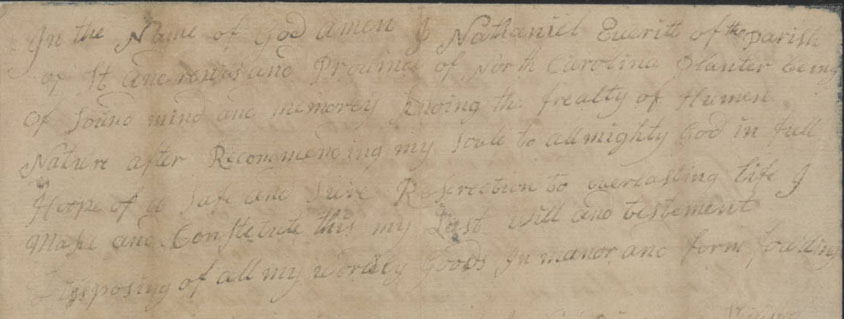 In the Name of God Amen I Nathaniel Everitt of the parish
of St Andrews and Province of North Carolina Planter being
Of Sound mind and memorey knoing the frealty of Humen
Nature after Recommending my Soule to allmighty God in full
Hoope of a Safe and Suire Resrection to everlasting life I
Make and Constecute this my Last will and testement
Disposing of all my worldly Goods In manor and form